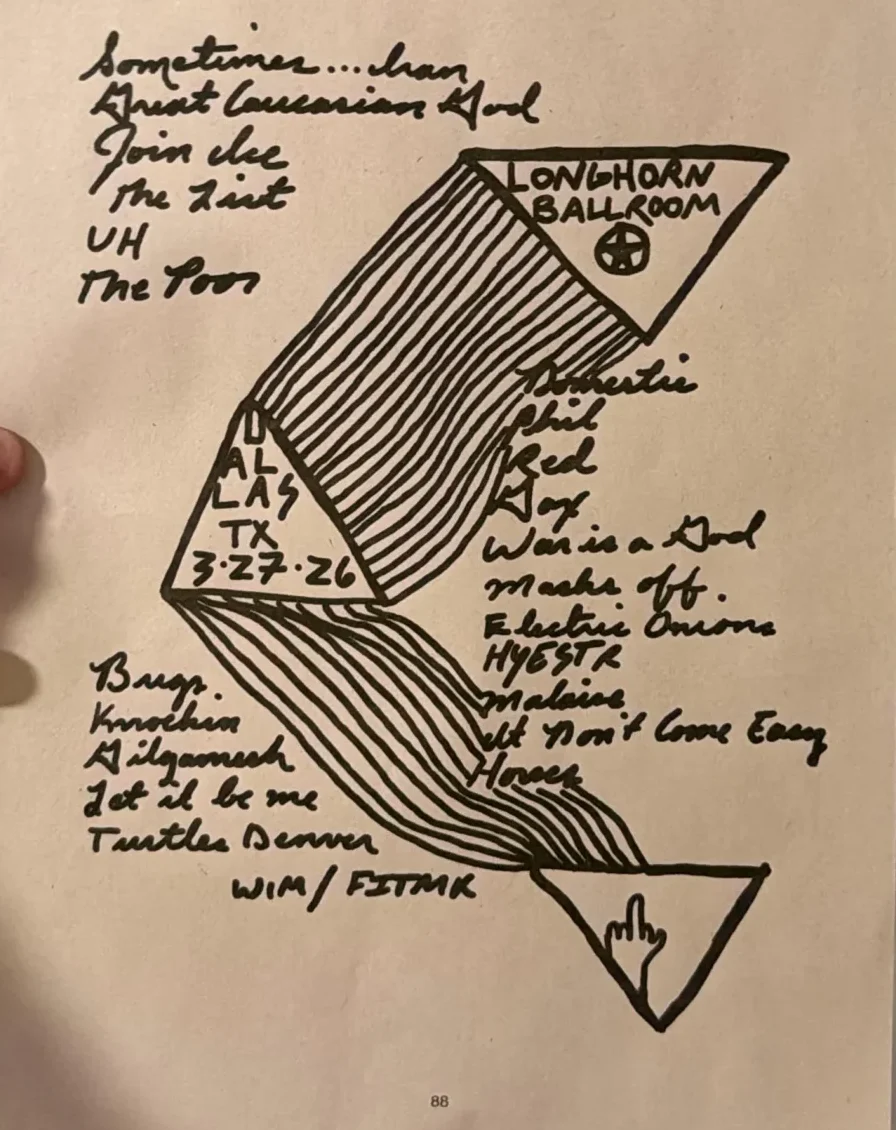 Sometimes...
Great Caucasian God
Join ICE
The List
UH
The Poor
LONGHORN
BALLROOM
Domestic
Phil
Red
Gax
War is a God
Masks off.
Electric Onions
HYESTR
Malaise
It Don't Come Easy
Hower
D
AL
LAS
TX
3.27.26
Bugs.
Knockin
Gilgamesh
Let it be me
Turtles Denver
WIM / FITMR
88